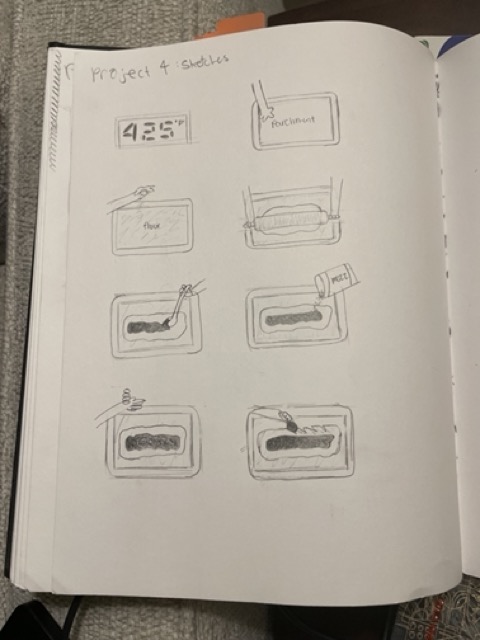 Project 4: Sketches
425°F
Parchment
flour